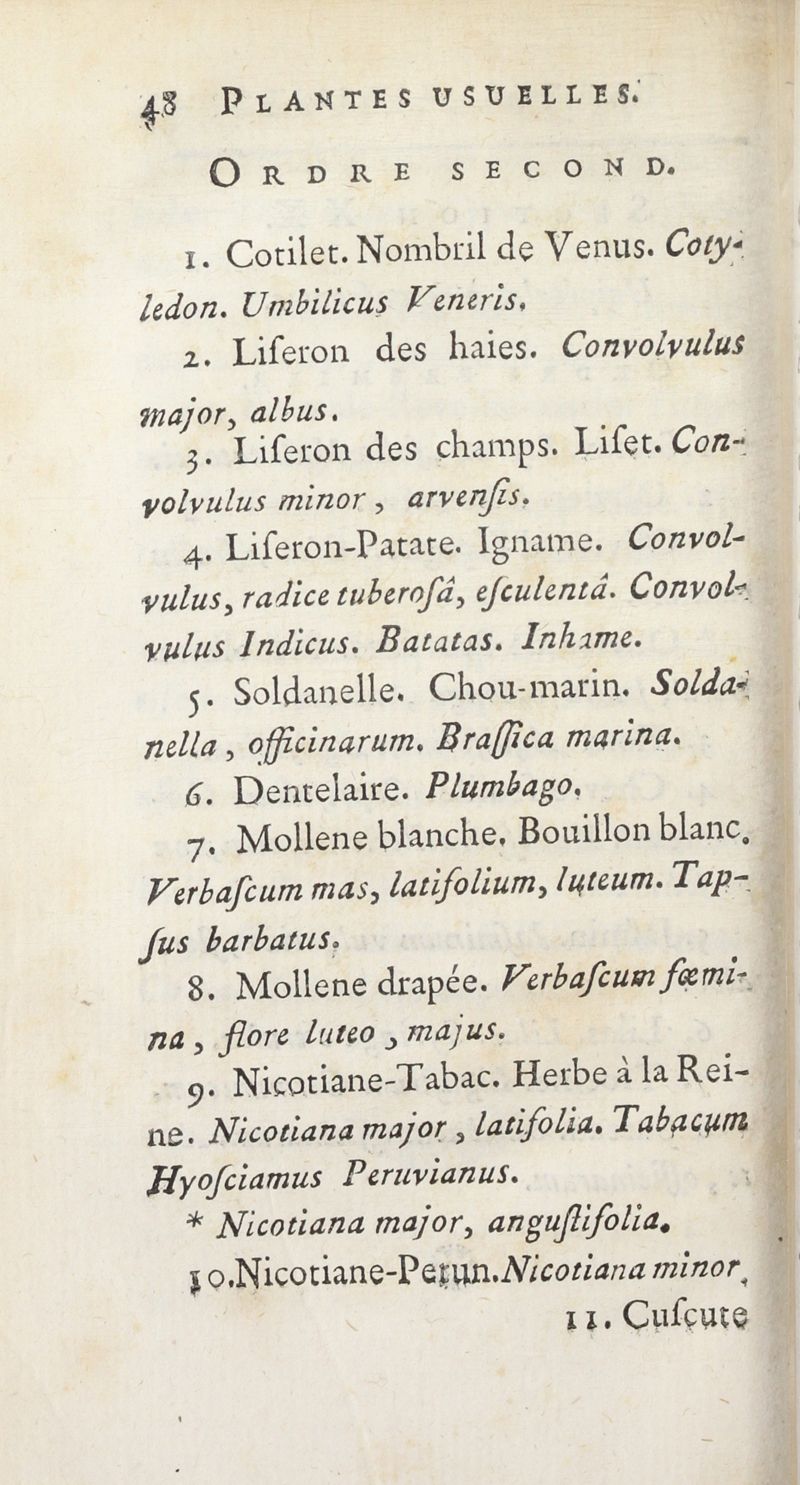 48 PLANTES USUELLES.
ORDRE SECOND.
1. Cotilet. Nombril de Venus. Coty-
ledon. Umbilicus Veneris.
2. Liſeron des haies. Convolvulus
major, albus.
3. Liſeron des champs. Liſet. Con-
volvulus minor, arvenſis.
4. Liſeron-Patate. Igname. Convol-
vulus, radice tuberoſâ, eſculentâ. Convol-
vulus Indicus. Batatas. Inhame.
5. Soldanelle. Chou-marin. Solda-
nella, officinarum. Braſſica marina.
6. Dentelaire. Plumbago.
7. Mollene blanche. Bouillon blanc.
Verbaſcum mas, latifolium, luteum. Tap-
ſus barbatus.
8. Mollene drapée. Verbaſcum fœmi-
na, flore luteo, majus.
9. Nicotiane-Tabac. Herbe à la Rei-
ne. Nicotiana major, latifolia. Tabacum
Hyoſciamus Peruvianus.
* Nicotiana major, anguſtifolia.
10. Nicotiane-Petun. Nicotiana minor.
11. Cuſcute